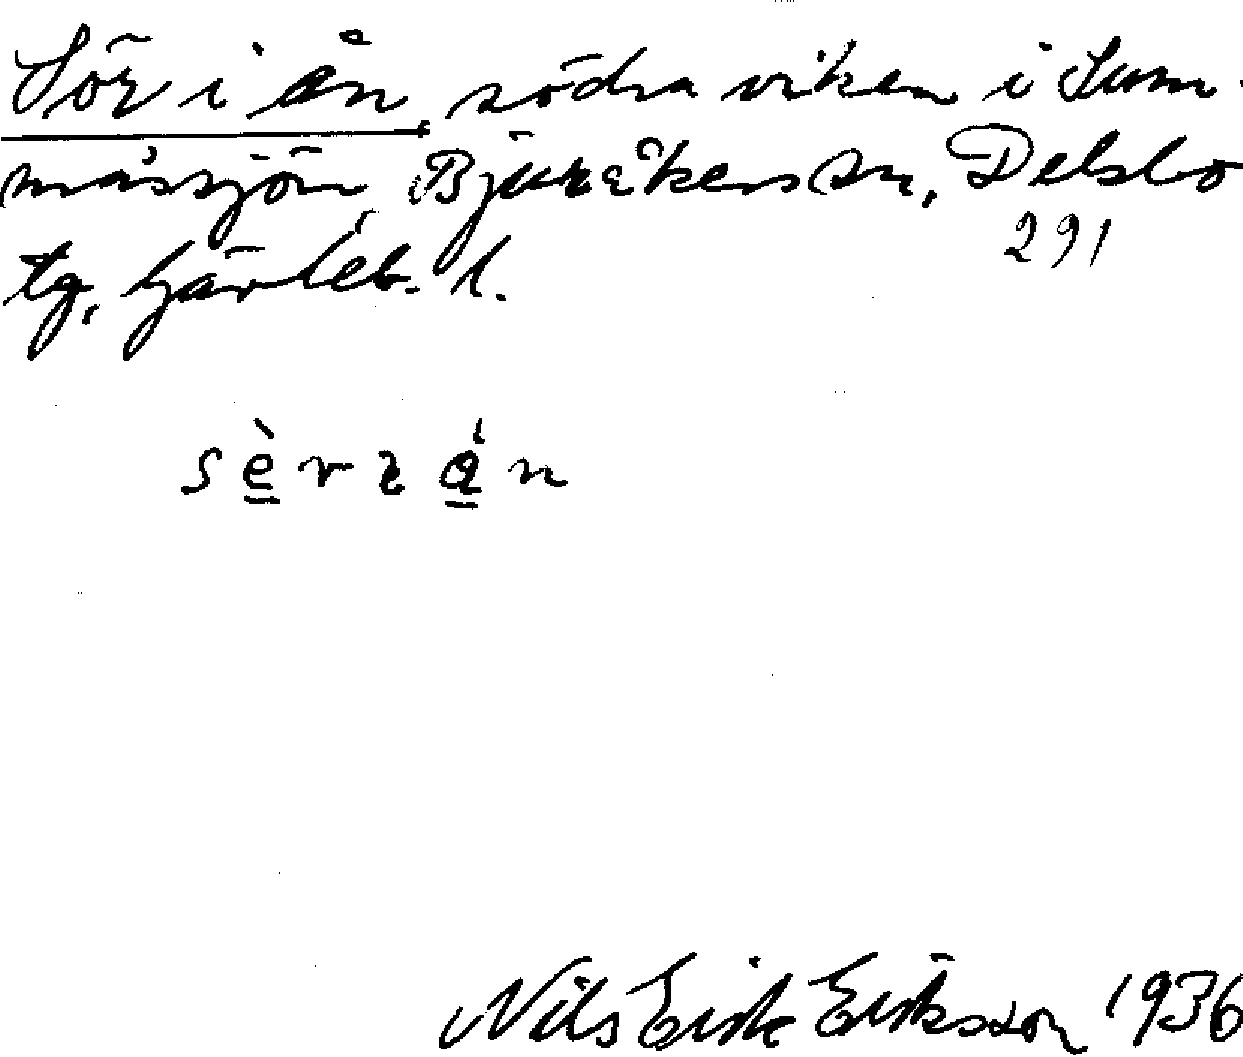 Sör i ån, södra viken i Sum-
måssjön, Bjuråkers sn, Delsbo
291
tg, Gävleb. l.
sèrɩån
Nils Erik Eriksson 1936